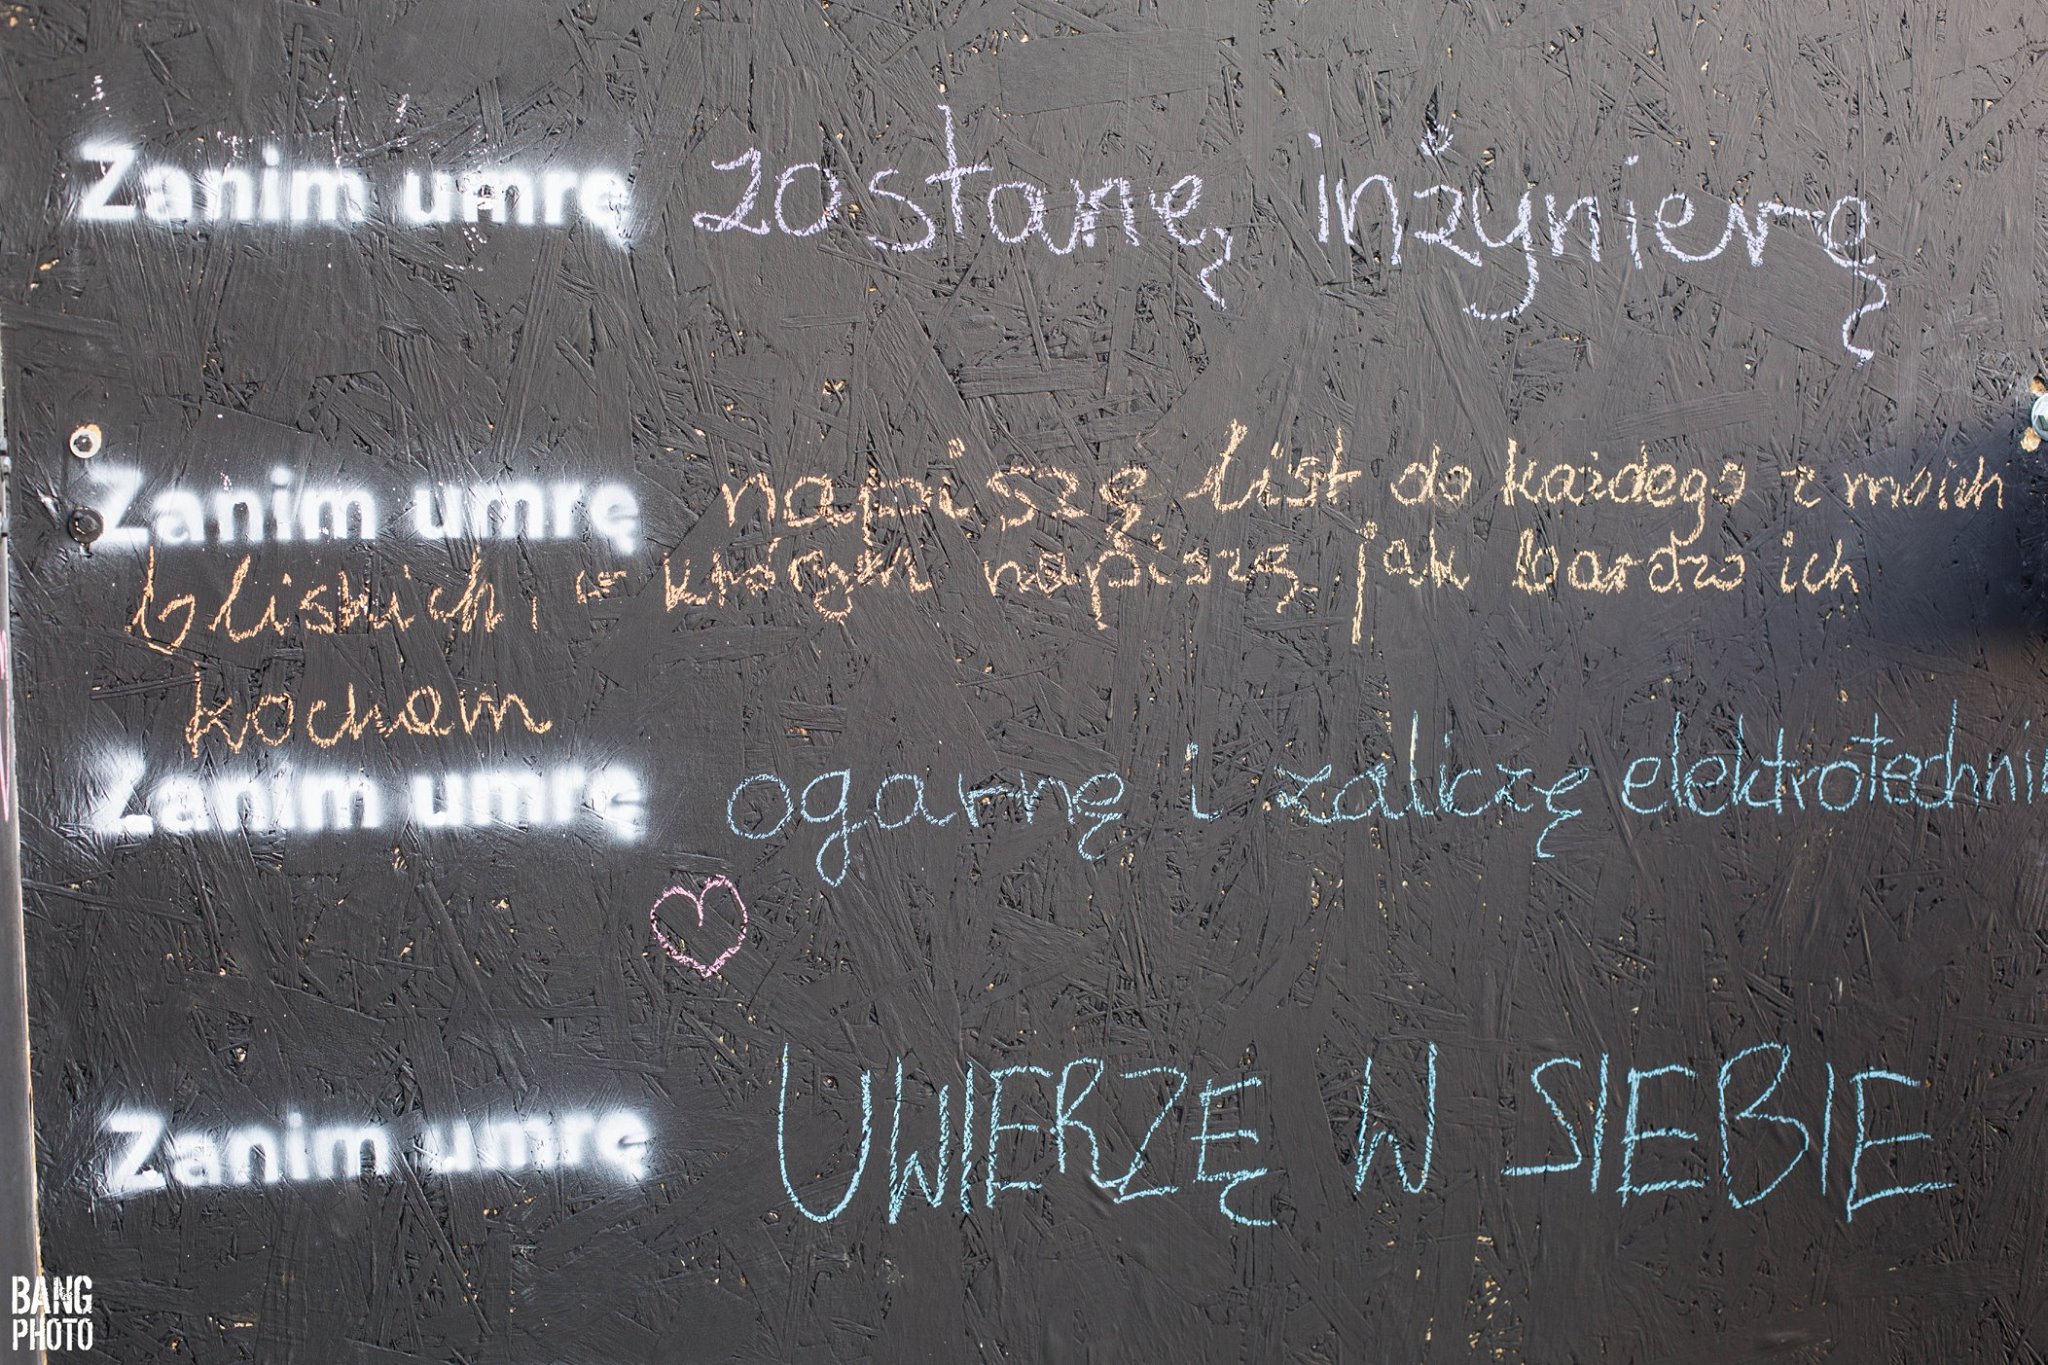 Zanim umrę zostanę inżynierę
Zanim umrę napiszę list do każdego z moich
bliskich, w którym napiszę jak bardzo ich
kocham
Zanim umrę ogarnę i zaliczę elektrotechni
Zanim umrę UWIERZĘ W SIEBIE
BANG
PHOTO